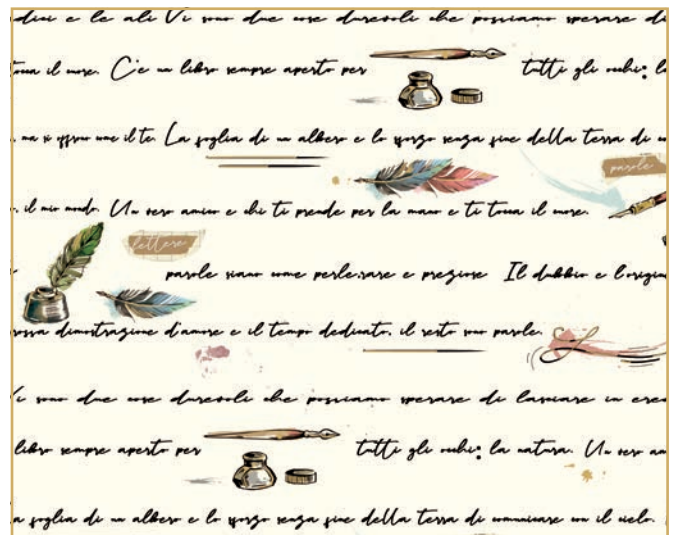 dici e le ali Vi sono due cose durevoli che possiamo sperare di
tocca il cuore. C'e un libro sempre aperto per tutti gli occhi: la
, ma si offrono come il te. La foglia di un albero e lo sforzo senza fine della Terra di
parole
, il mio mondo. Un vero amico e chi ti prende per la mano e ti tocca il cuore.
lettere
parole siano come perle:rare e preziose Il dubbio e l'origine
rossa dimostrazione d'amore e il tempo dedicato. il resto sono parole.
Vi sono due cose durevoli che possiamo sperare di lasciare in ered
libro sempre aperto per tutti gli occhi: la natura. Un vero am
a foglia di un albero e lo sforzo senza fine della Terra di comunicare con il cielo.